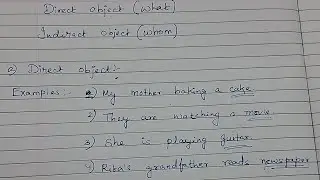 Direct object (what)
Indirect object (whom)
a) Direct object:-
Examples:- 1) My mother baking a cake
2) They are watching a movie
3) She is playing guitar
4) Riba's grandfather reads newspaper